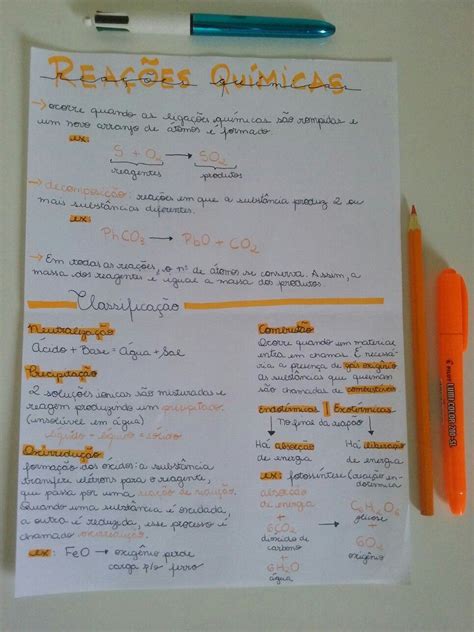 REAÇÕES QUÍMICAS
reações químicas
→ ocorre quando as ligações químicas são rompidas e
um novo arranjo de átomos é formado.
ex:
S + O₂ → SO₂
reagentes produtos
→ decomposição: reações em que a substância produz 2 ou
mais substâncias diferentes.
ex
PhCO₃ → PbO + CO₂
→ Em todas as reações, o nº de átomos se conserva. Assim, a
massa dos reagentes é igual a massa dos produtos.
Classificação
Neutralização
Ácido + Base = Água + Sal
Precipitação
2 soluções iônicas são misturadas e
reagem produzindo um precipitado
(insolúvel em água)
líquido + líquido = sólido
Oxirredução
formação dos óxidos: a substância
transfere elétrons para o reagente,
que passa por uma reação de redução.
Quando uma substância é oxidada,
a outra é reduzida, esse processo é
chamado oxirredução.
ex: FeO → oxigênio perde
carga p/o ferro
Combustão
Ocorre quando um material
entra em chamas. É necessá-
ria a presença de gás oxigênio
As substâncias que queimam
são chamadas de combustíveis
Endotérmicas | Exotérmicas
no final da reação
Há absorção Há liberação
de energia de energia
ex: fotossíntese (reação en-
dotérmica
absorção
de energia
+
6CO₂
dióxido de
carbono
+
6H₂O
água
→
C₆H₁₂O₆
glicose
+
6O₂
oxigênio
PILOT